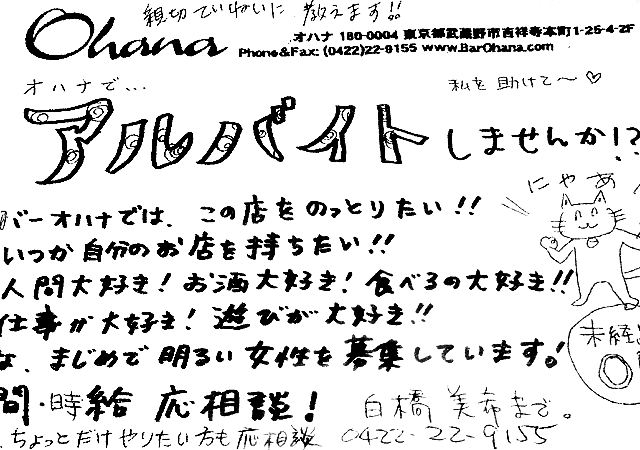 親切ていねいに 教えます!!
Ohana
オハナ 180-0004 東京都武蔵野市吉祥寺本町1-25-4-2F
Phone&Fax: (0422)22-9155 www.BarOhana.com
オハナで…
私を助けて〜♡
アルバイトしませんか!?
にゃあ
バーオハナでは、この店をのっとりたい!!
いつか自分のお店を持ちたい!!
人間大好き! お酒大好き! 食べるの大好き!!
仕事が大好き! 遊びが大好き!!
な、まじめで明るい女性を募集しています。!
未経
〇
間・時給 応相談!
白橋 美希まで。
ちょっとだけやりたい方も応相談 0422-22-9155